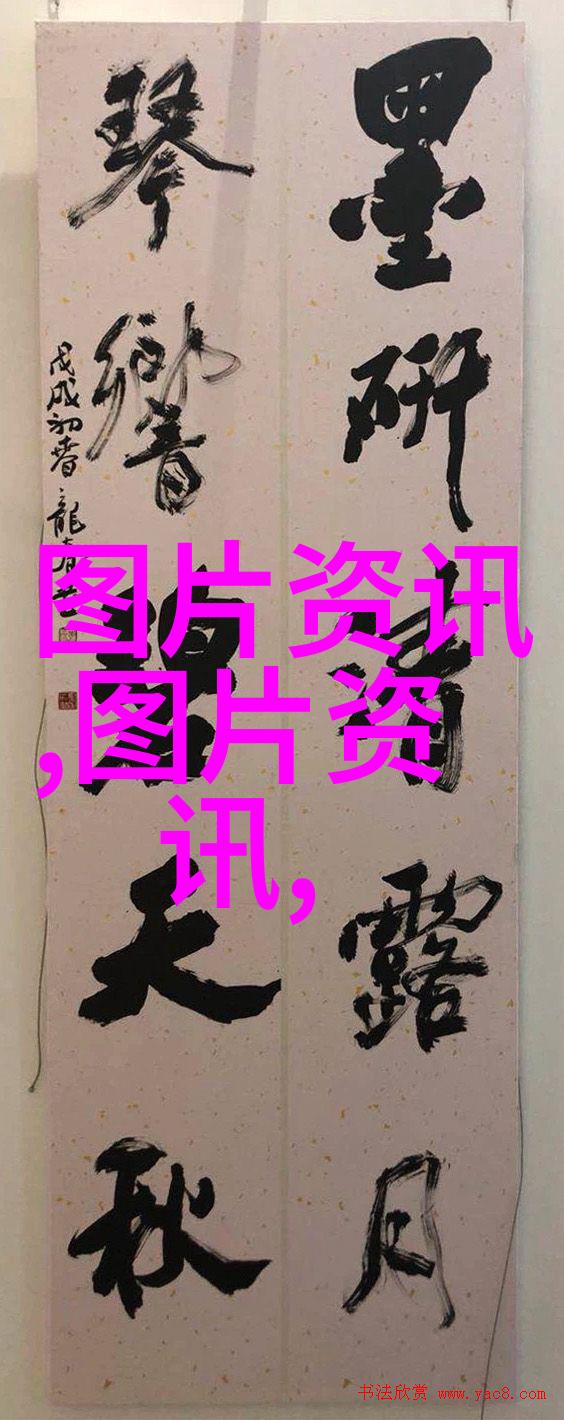 墨研清露月
琴響天秋
戊戌初春龍
图片资讯
,图片资
讯,
书法欣赏 www.yac8.com